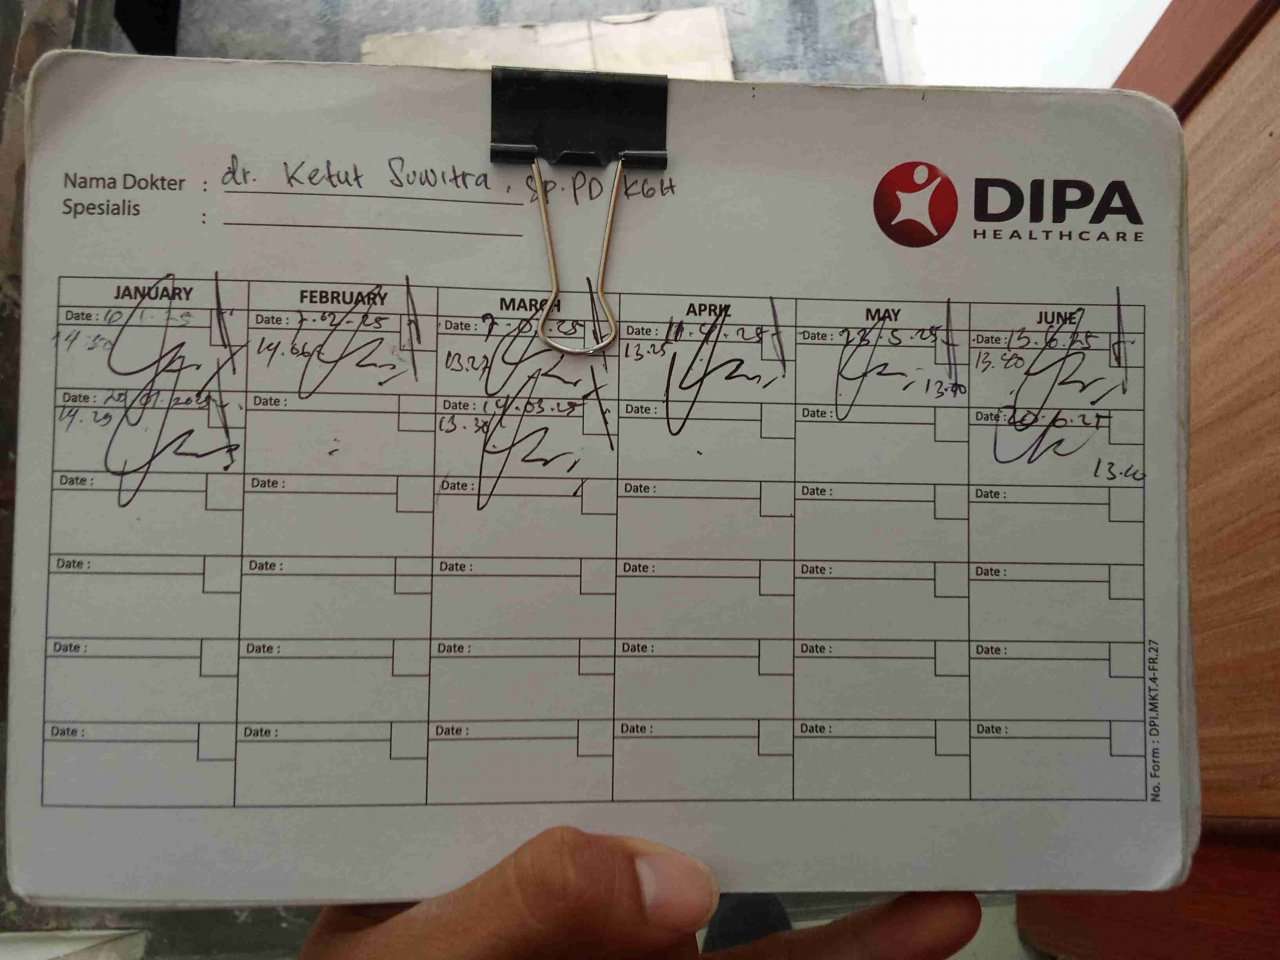 Nama Dokter : dr. Ketut Suwitra, Sp.PD KGH
Spesialis :
DIPA
HEALTHCARE
JANUARY FEBRUARY MARCH APRIL MAY JUNE
Date : Date : 7.02.25 Date : Date : Date : 23.5.25 Date : 13.6.25
14.30 13.27 13.25 13.40
Date : Date : Date : 14.03.25 Date : Date : Date : 20.6.25
14.25 13.30
13.40
Date : Date : Date : Date : Date : Date :
Date : Date : Date : Date : Date : Date :
Date : Date : Date : Date : Date : Date :
Date : Date : Date : Date : Date : Date :
No. Form : DPI.MKT.4-FR.27